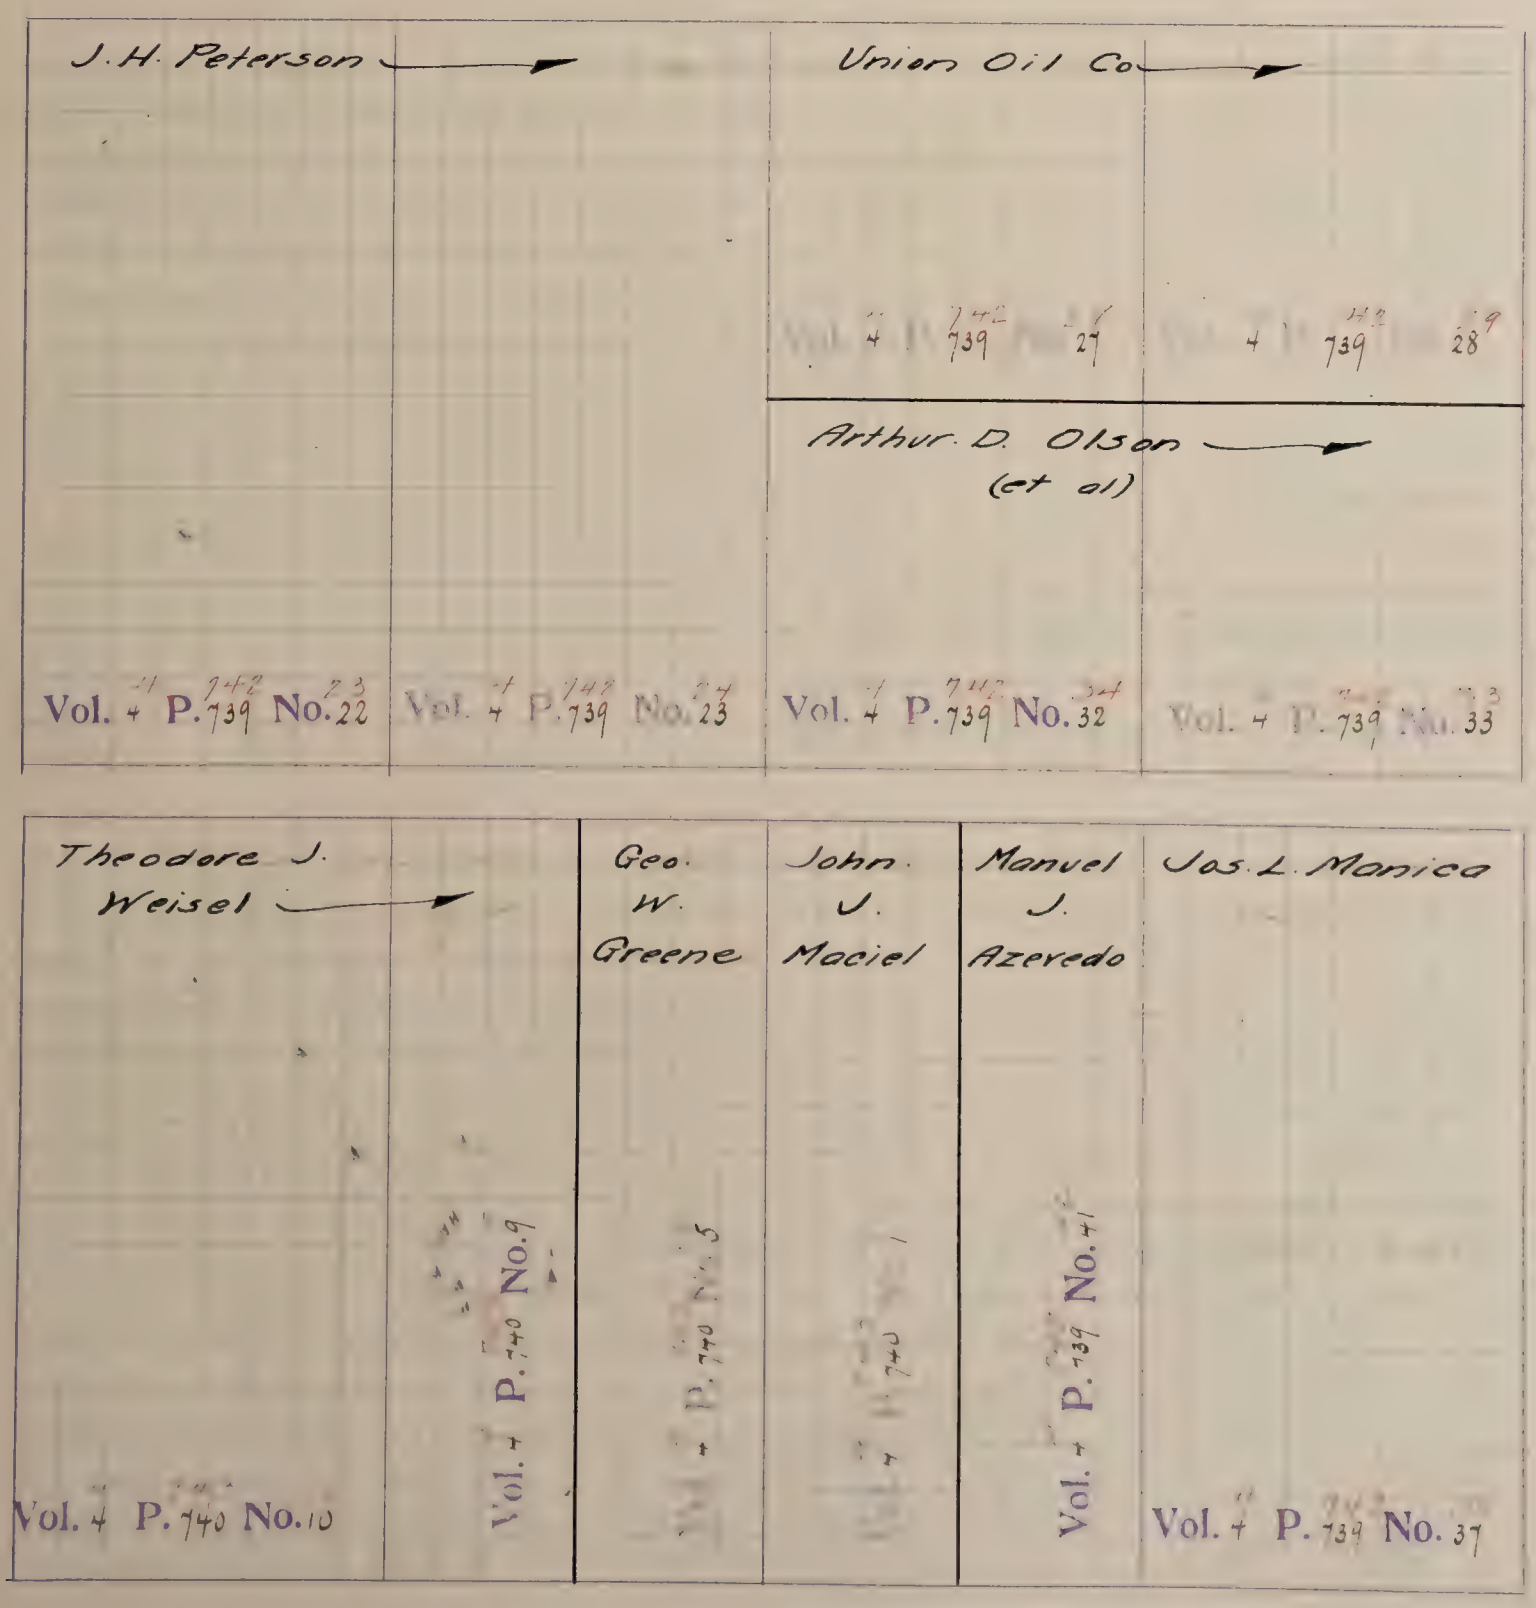 J. H. Peterson
Union Oil Co
4 739 27
4 739 28
Arthur. D. Olson
(et al)
Vol. 4 P. 739 No. 22
Vol. 4 P. 739 No. 23
Vol. 4 P. 739 No. 32
Vol. 4 P. 739 No. 33
Theodore J.
Weisel
Geo.
W.
Greene
John.
J.
Maciel
Manuel
J.
Azevedo
Jos. L. Manica
Vol. 4 P. 740 No. 10
Vol. 4 P. 740 No. 9
Vol. 4 P. 740 No. 5
4 P. 740 1
Vol. 4 P. 739 No. 41
Vol. 4 P. 739 No. 37